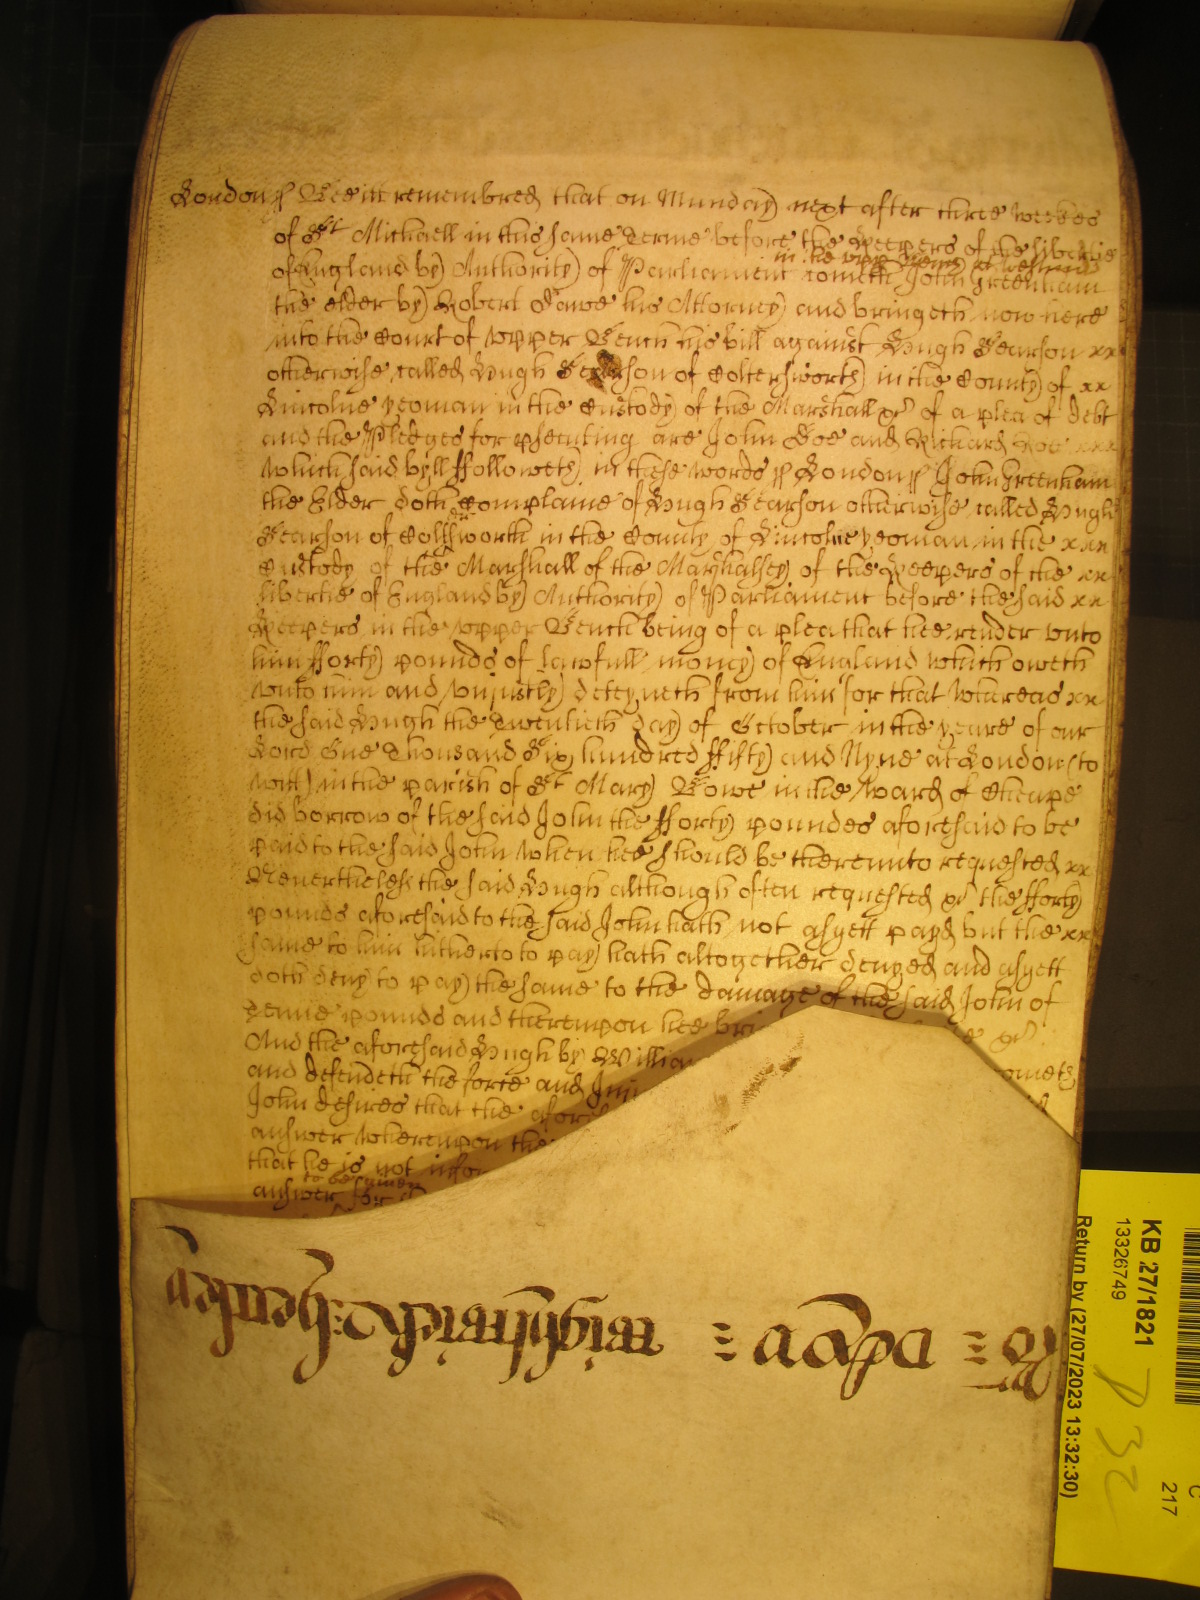 London ss Bee itt remembred that on Munday next after three weekes
of St Michaell in this same Terme before the Keepers of the libertie
in the upper Bench at Westminster
of England by Authority of Parliament cometh John Greenham
the elder by Robert Dawe his Attorney and bringeth now here
into the Court of upper Bench his bill against Hugh Pearson xx
otherwise called Hugh Pearson of Colterworth in the County of xx
Lincolne yeoman in the Custody of the Marshall &c of a plea of debt
and the Pledges for psecuting are John Doe and Richard Roe xxx
which said byll ffolloweth in these words ss London ss John Greenham
the Elder doth Complaine of Hugh Pearson otherwise called Hugh
Pearson of Colsworth in the County of Lincolne yeoman in the xxx
Custody of the Marshall of the Marshalsey of the Keepers of the xx
libertie of England by Authority of Parliament before the said xx
Keepers in the upper Bench being of a plea that hee render unto
him fforty pounds of lawfull money of England which oweth
unto him and unjustly deteyneth from him for that whereas xx
the said Hugh the Twentieth day of October in the yeare of our
Lord One Thousand Six hundred ffifty and Nyne at London (to
witt) in the parish of St Mary Bowe in the Ward of Cheape
did borrow of the said John the fforty poundes aforesaid to be
paid to the said John when hee should be thereunto requested xx
Neverthelesse the said Hugh although often requested &c the fforty
pounds aforesaid to the said John hath not asyett payd but the xx
same to him hitherto to pay hath altogether denyed and asyett
doth deny to pay the same to the damage of the said John of
Tenne pounds and thereupon hee bri &c
And the aforesaid Hugh by Willia cometh
and defendeth the force and Inju
John desires that the afore
answer whereupon the
that he is not infor
to be given
answer for
KB 27/1821
13326749
217
Return by (27/07/2023 13:32:30)
P 32